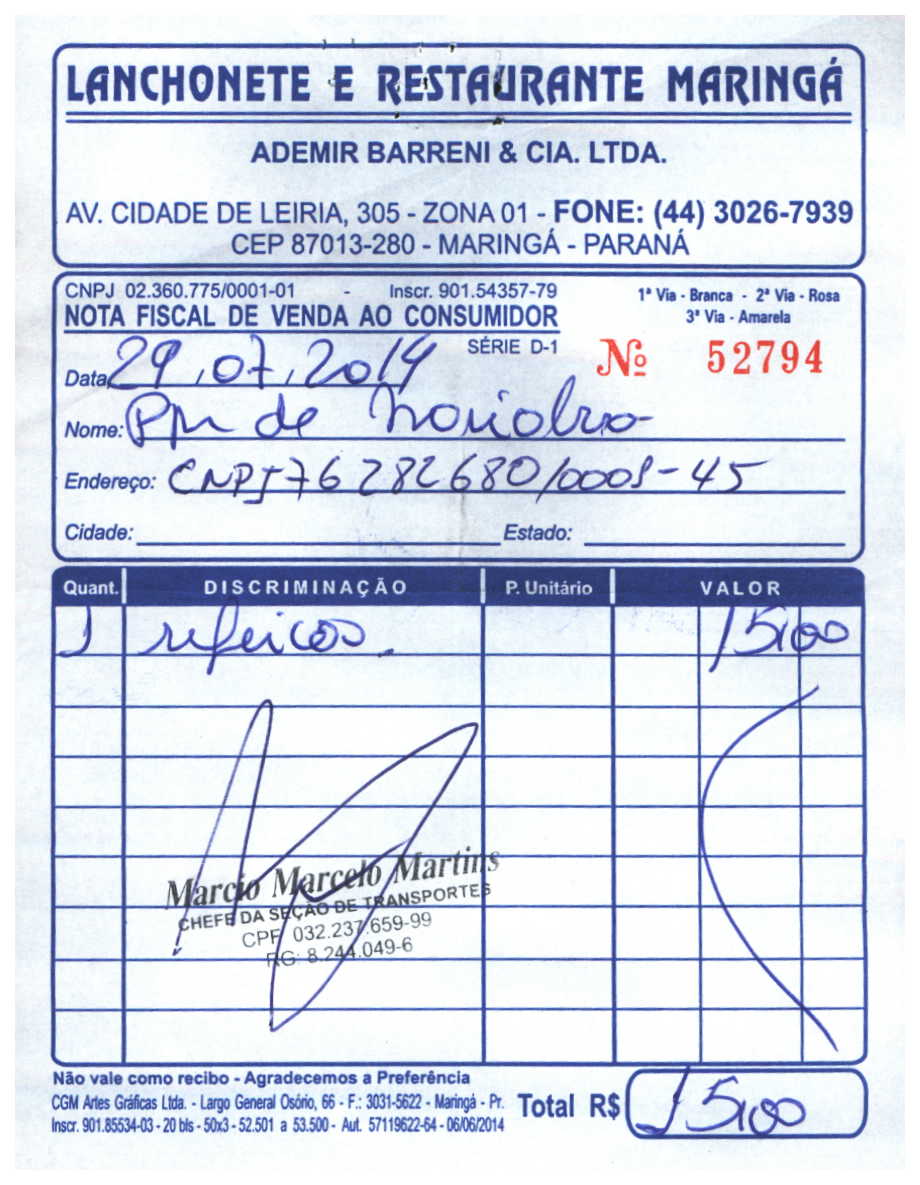 LANCHONETE E RESTAURANTE MARINGÁ
ADEMIR BARRENI & CIA. LTDA.
AV. CIDADE DE LEIRIA, 305 - ZONA 01 - FONE: (44) 3026-7939
CEP 87013-280 - MARINGÁ - PARANÁ
CNPJ 02.360.775/0001-01 - Inscr. 901.54357-79
1ª Via - Branca - 2ª Via - Rosa
3ª Via - Amarela
NOTA FISCAL DE VENDA AO CONSUMIDOR
SÉRIE D-1
Nº 52794
Data 29,07,2014
Nome: de
Endereço: CNPJ 76282680/0001-45
Cidade: Estado:
Quant. DISCRIMINAÇÃO P. Unitário VALOR
1 15,00
Marcio Marcelo Martins
CHEFE DA SEÇÃO DE TRANSPORTES
CPF 032.237.659-99
RG: 8.244.049-6
Não vale como recibo - Agradecemos a Preferência
CGM Artes Gráficas Ltda. - Largo General Osório, 66 - F.: 3031-5622 - Maringá - Pr.
Inscr. 901.85534-03 - 20 bls - 50x3 - 52.501 a 53.500 - Aut. 57119622-64 - 06/06/2014
Total R$ 15,00